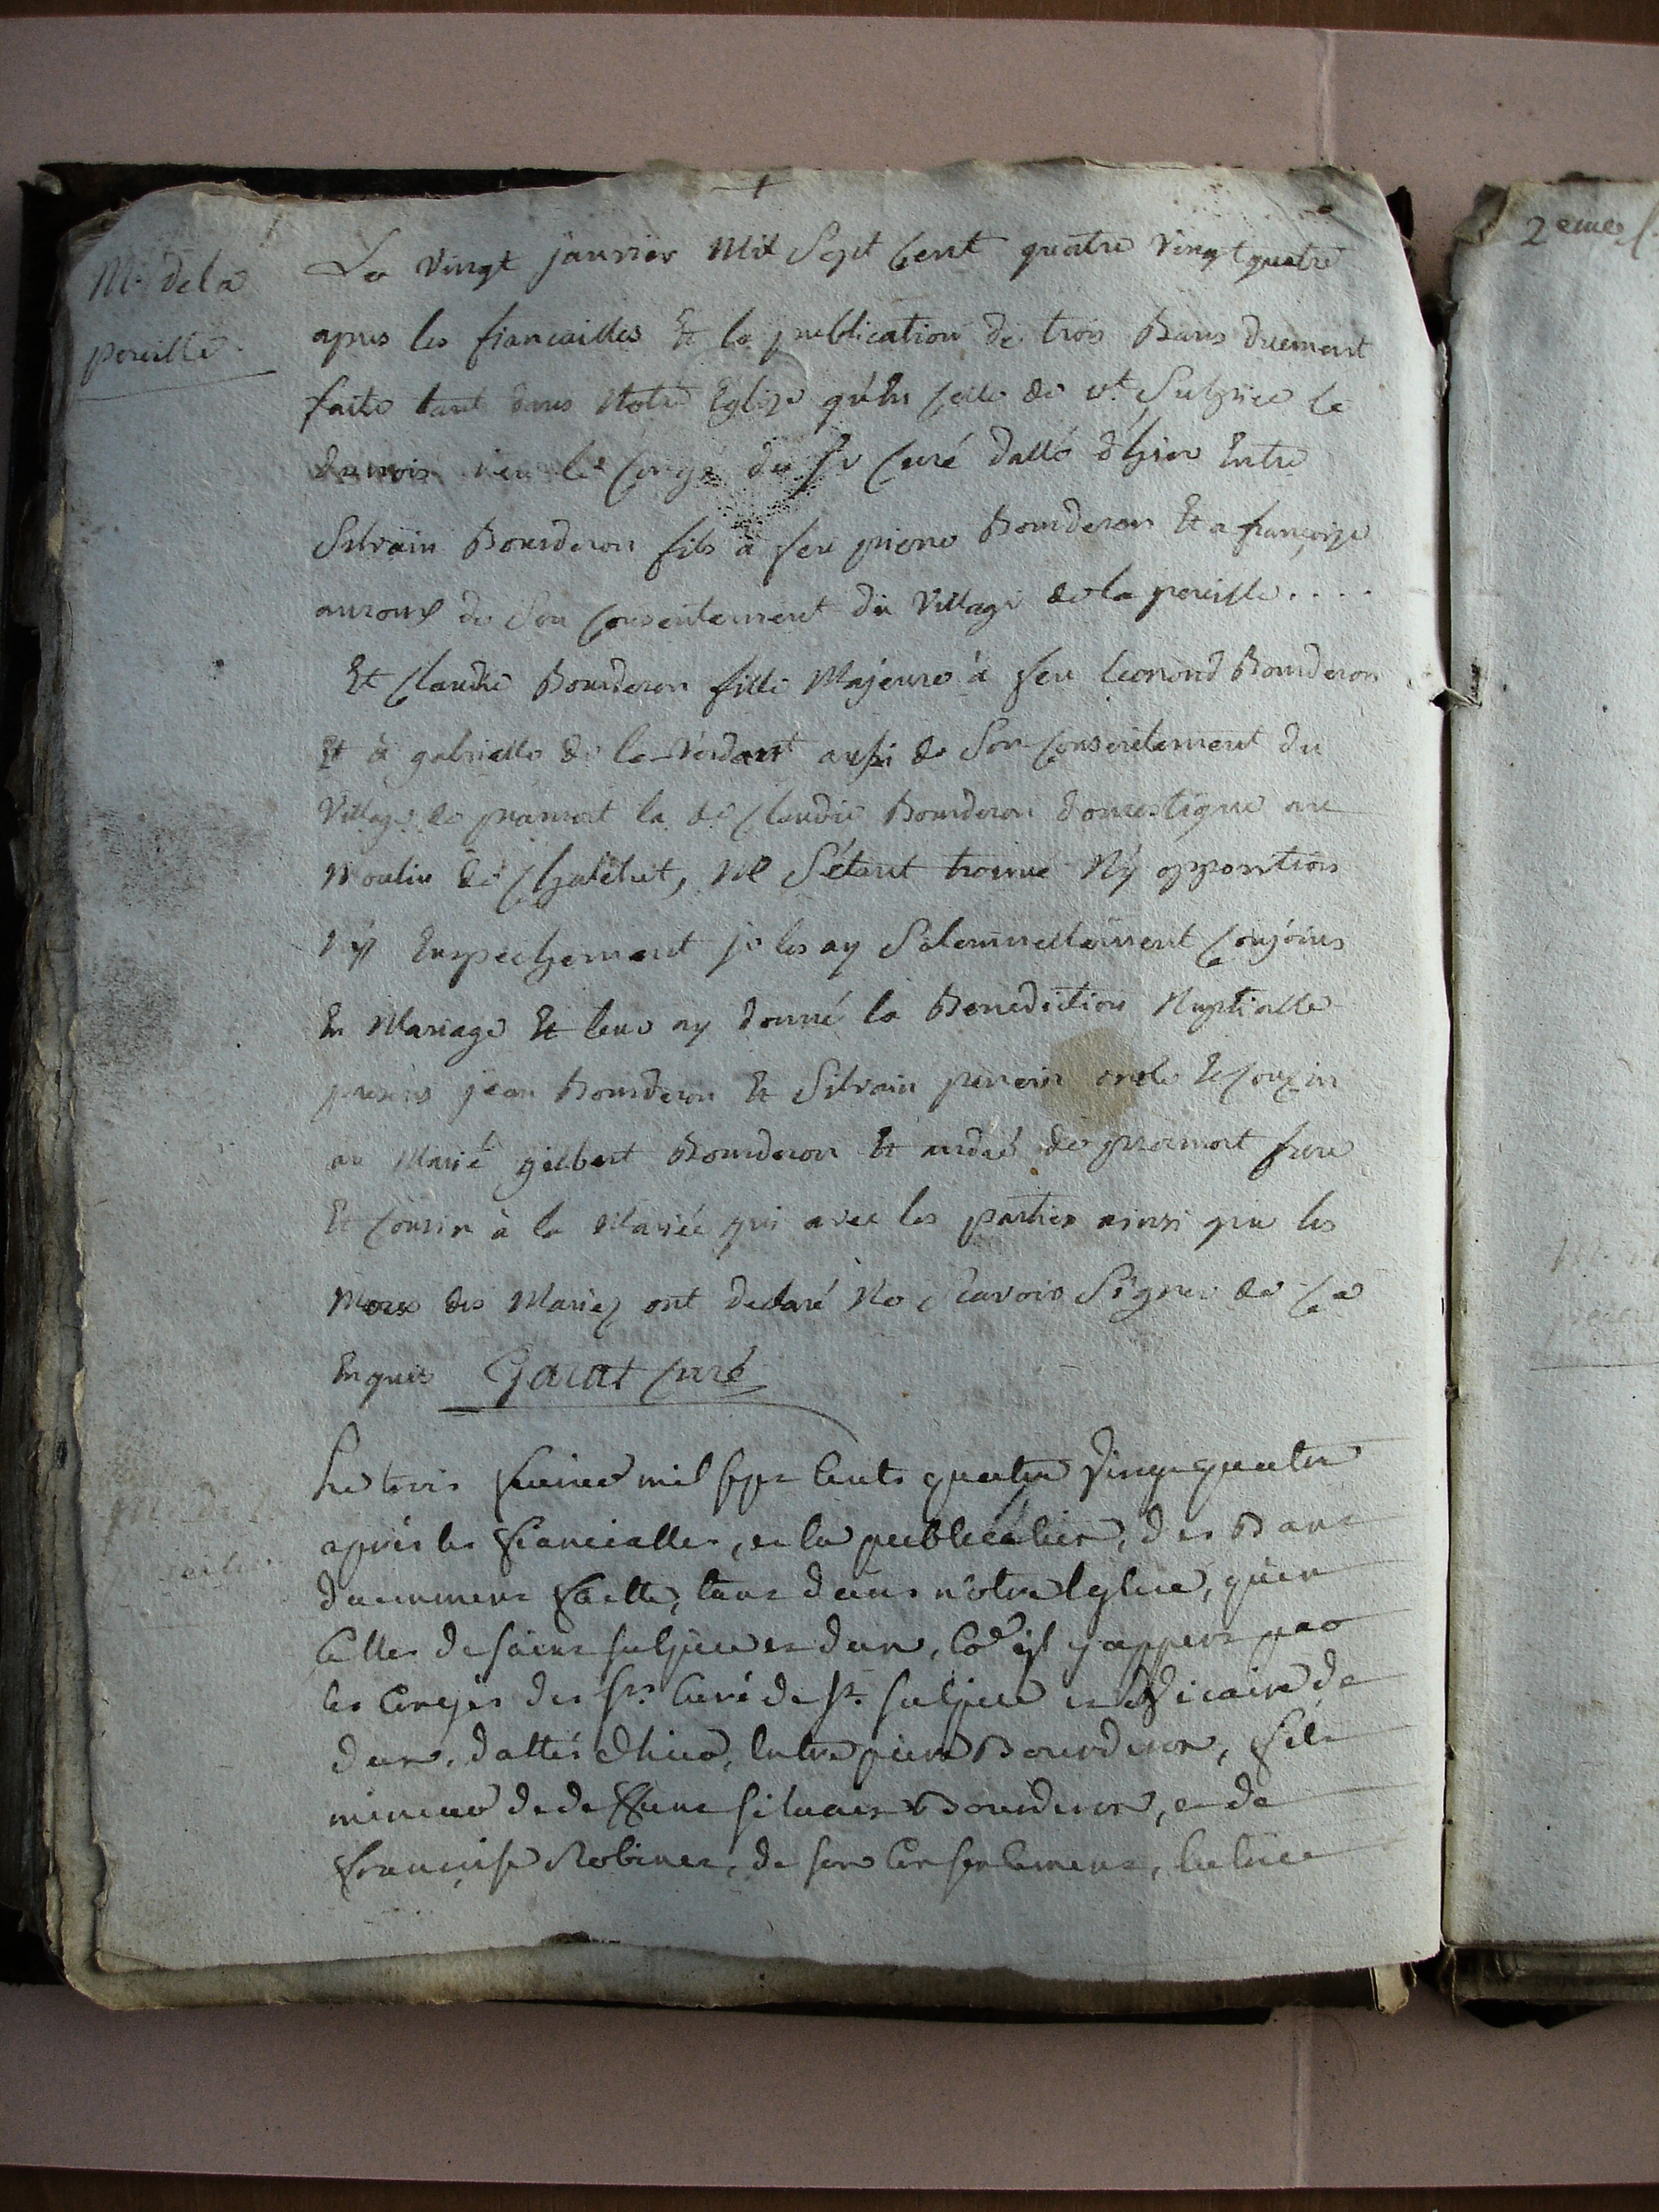 M. de la
pereille
Le vingt janvier Mil Sept Cent quatre vingt quatre
apres les fiancailles Et la publication de trois Bans duement
faite tant dans Notre Eglise qu'En celle de st. Sulpice le
dunois veu le Congé du Sr Curé datté d'hier Entre
Silvain Bourderon fils à feu pierre Bourderon Et a françoise
de Son Consentement du Village de la pereille....
Et Claudie Bourderon fille Majeure à feu leonard Bourderon
Et à gabrielle de la aussi de Son Consentement du
Village de la de Claudie Bourderon domestique au
Moulin de Chalelut, Ne S'étant trouvé Ny opposition
Ny Empechement je les ay Solemnellement Conjoins
En Mariage Et leur ay donné la Benediction Nuptialle
presens jean Bourderon Et Silvain oncle Et Couzin
au Marié gilbert Bourderon Et andré de frere
Et Cousin à la Mariée qui avec les parties ainsi que les
Meres des Mariez ont declaré Ne Scavoir Signer de Ce
Enquis Garat Curé
Le trois fevrier mil sept Cents quatre vingt quatre
après les fiancialles, et la publication, des Bans
duemment faitte, tant dans nôtre Eglise, qu'en
Celles de saint sulpice et dun, il y appert par
les Congés des srs. Curé de st. sulpice et vicaire de
dun, dattés d'hier, Entre pierre Bourderon, fils
mineur de deffunt silvain Bourderon, et de
françoise Robinet, de son Consentement,
2eme f.